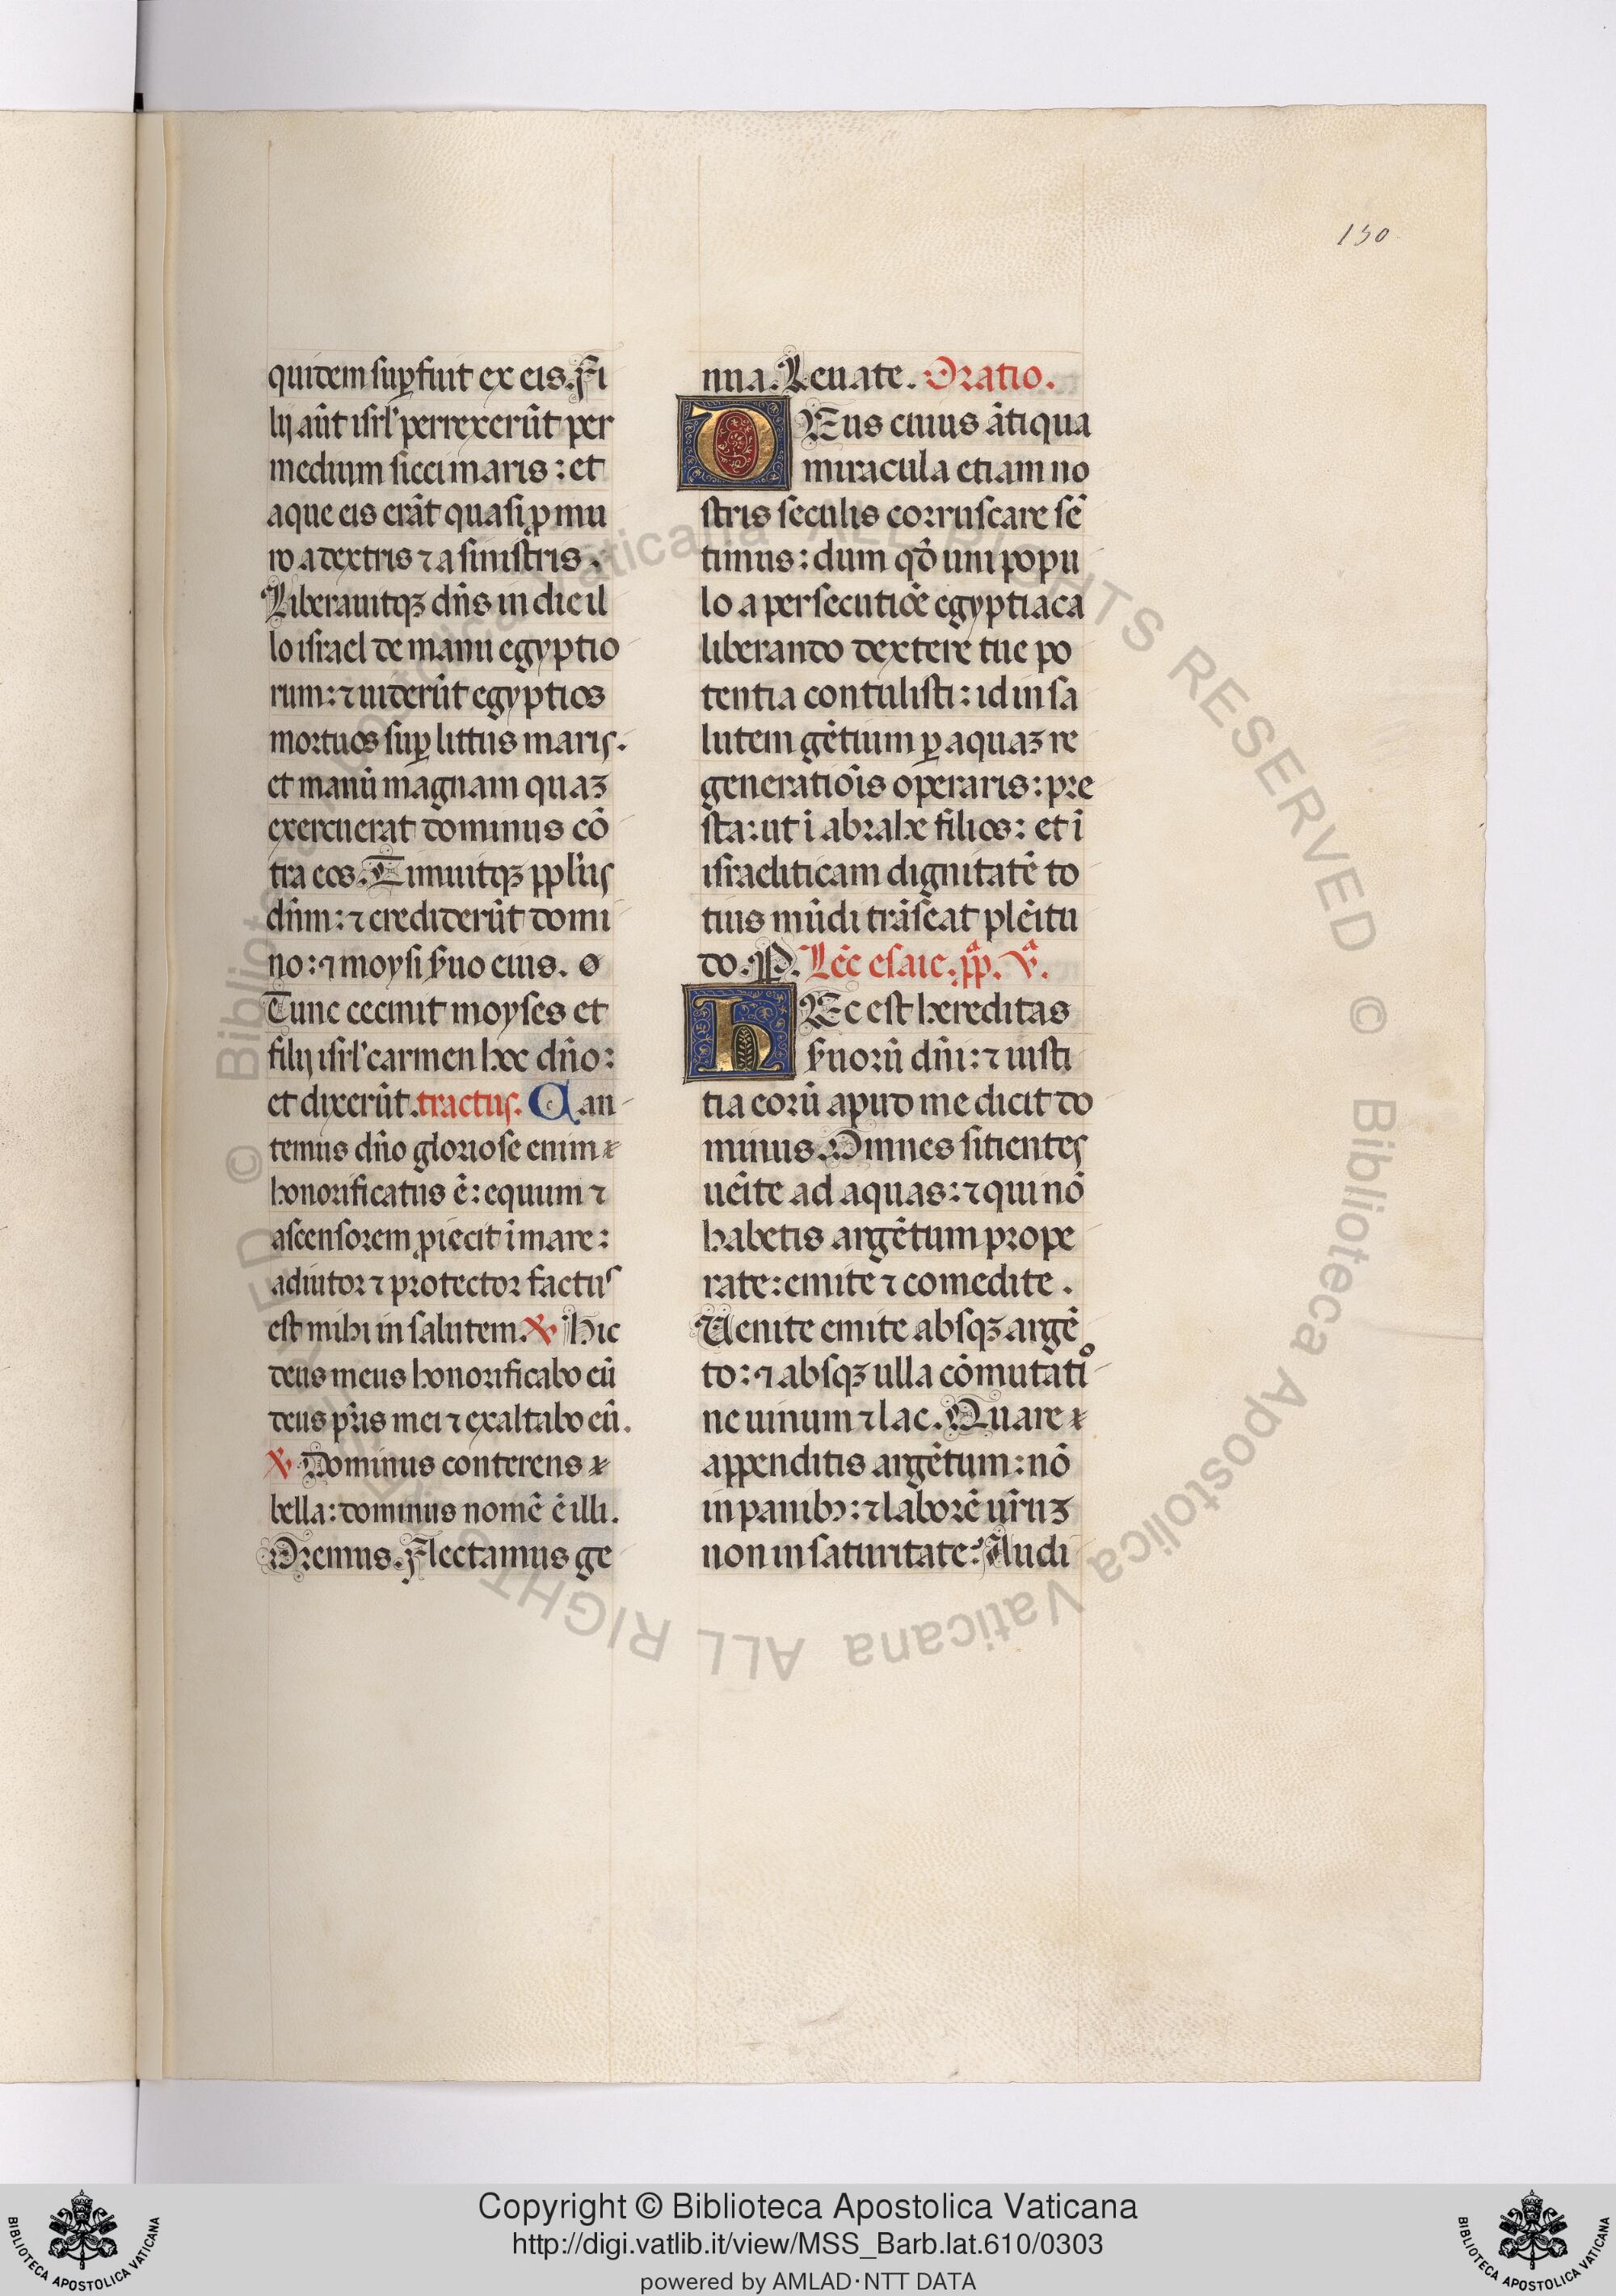 130
quidem suꝑfuit ex eis. Fi
lij aũt isrl' perrexerũt per
medium sicci maris: et
aque eis erãt quasi ꝓ mu
ro a dextris ⁊ a sinistris.
Liberauitqꝫ dñs in die il
lo israel de manu egyptio
rum: ⁊ uiderũt egyptios
mortuos suꝑ littus maris.
et manũ magnam quaꝫ
exercuerat dominus cõ
tra eos. Timuitqꝫ ppl'us
dñm: ⁊ crediderũt domi
no: ⁊ moysi s̃uo eius. ø
Tunc cecinit moyses et
filij isrl' carmen hoc dño:
et dixerũt. tractus. Can
temus dño gloriose enim
honorificatus ẽ: equum ⁊
ascensorem ꝓiecit ĩ mare:
adiutor ⁊ protector factus
est mihi in salutem. ℣ Hic
deus meus honorificabo eũ
deus pr̃is mei ⁊ exaltabo eũ.
℣ Dominus conterens
bella: dominus nomẽ ẽ illi.
Oremus. Flectamus ge
nua. Leuate. Oratio.
DEus cuius ãtiqua
miracula etiam no
stris seculis corruscare sẽ
timus: dum qđ uni popu
lo a persecutiõe egyptiaca
liberando dextere tue po
tentia contulisti: id in sa
lutem gẽtium ꝑ aquaꝫ re
generatiõis operaris: pre
sta: ut ĩ abrahe filios: et ĩ
israeliticam dignitatẽ to
tius mũdi trãseat plẽitu
do. P. Lẽc esaie. pp̃. v.
HEc est hereditas
s̃uorũ dñi: ⁊ iusti
tia eorũ apud me dicit do
minus. Omnes sitientes
uẽite ad aquas: ⁊ qui nõ
habetis argẽtum prope
rate: emite ⁊ comedite.
Uenite emite absqꝫ argẽ
to: ⁊ absqꝫ ulla cõmutatio
ne uinum ⁊ lac. Quare
appenditis argẽtum: nõ
in panibꝫ: ⁊ laborẽ ur̃uꝫ
non in saturitate: Audi
© Biblioteca Apostolica Vaticana ALL RIGHTS RESERVED © Biblioteca Apostolica Vaticana ALL RIGHTS RESERVED
Copyright © Biblioteca Apostolica Vaticana
http://digi.vatlib.it/view/MSS_Barb.lat.610/0303
powered by AMLAD·NTT DATA
BIBLIOTECA APOSTOLICA VATICANA
BIBLIOTECA APOSTOLICA VATICANA